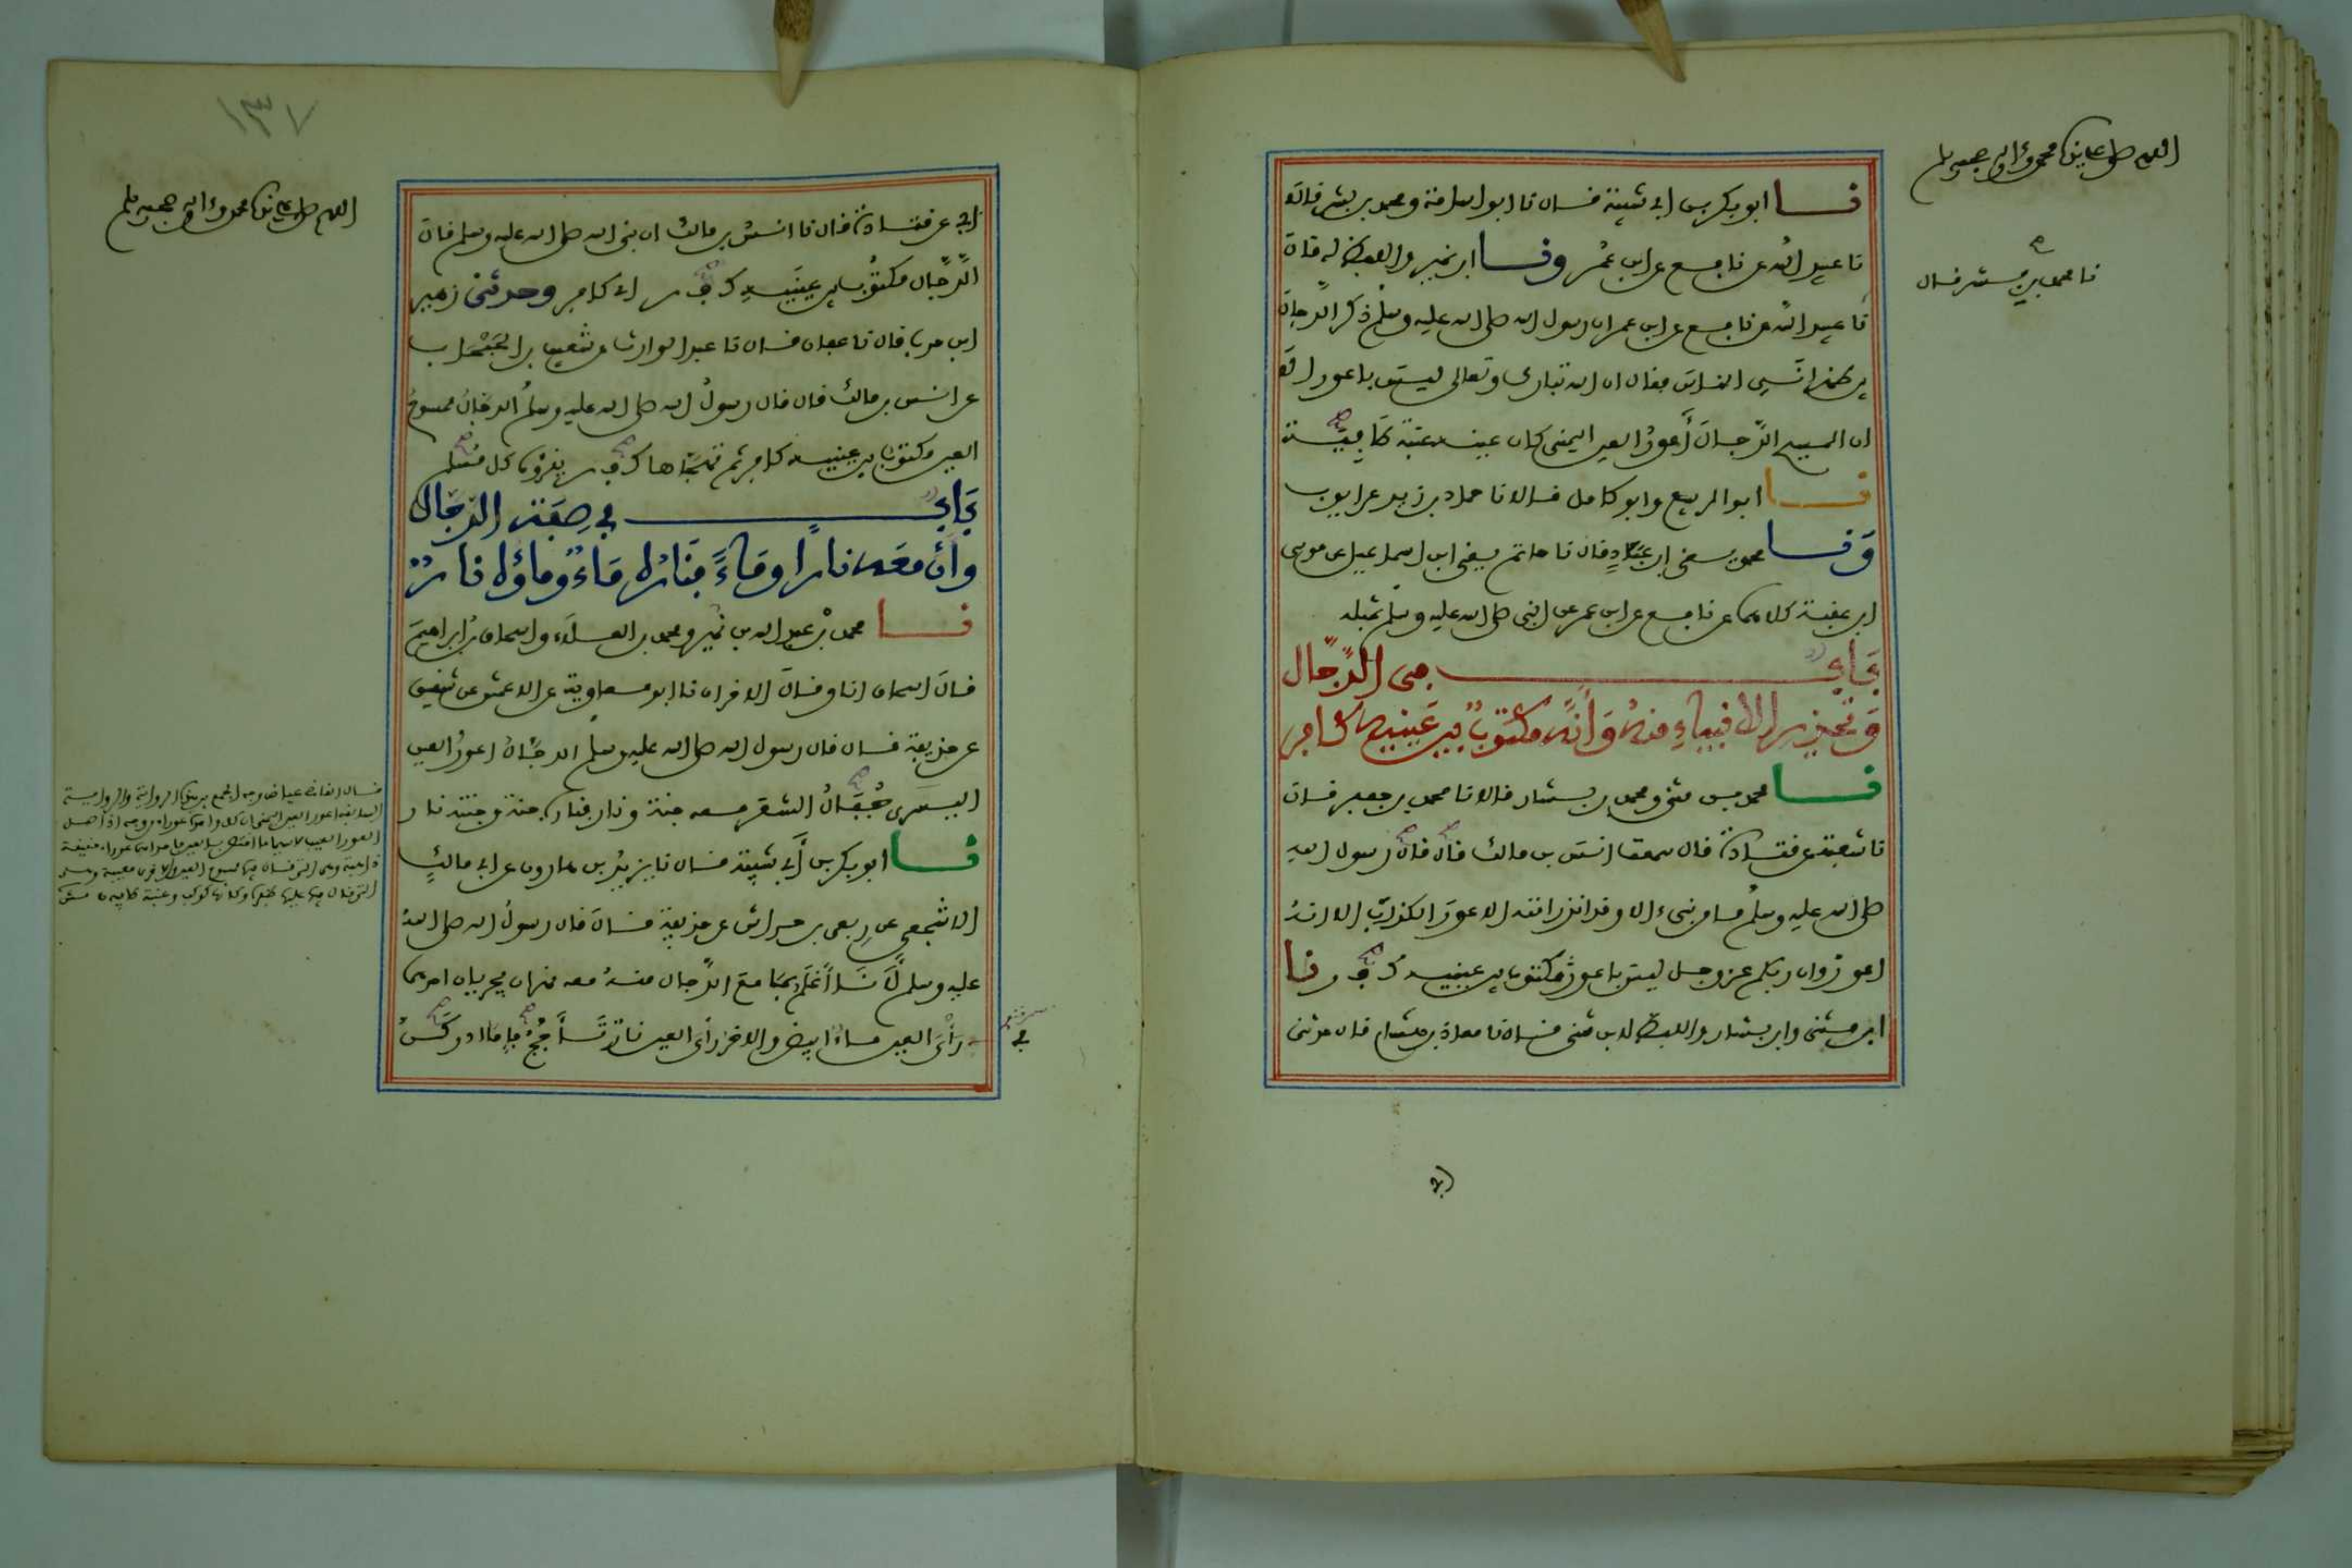 اللهم صل على سيدنا محمد وءاله وصحبه وسلم
نا ابو بكر بن ابي شيبة قال نا ابو اسامة ومحمد بن بشر قالا
نا عبيد الله عن نافع عن ابن عُمر ونا ابن نمير واللفظ له قال
نا محمد بن بشر قال
نا عبيد الله عن نافع عن ابن عمر ان رسول الله صلى الله عليه وسلم ذكر الدجال
بين ظهراني الناس فقال ان الله تبارك وتعالى ليس باعور الا
ان المسيح الدّجالَ أَعورُ العين اليمنى كان عينه عنبة طَافِيَة
نا ابو الربيع وابو كامل قالا نا حماد بن زيد عن ايوب
وَنا محمد يعني ابن عَبَّادٍ قال نا حاتم يعني ابن اسماعيل عن موسى
ابن عقبة كلاهما عن نافع عن ابن عمر عن النبي صلى الله عليه وسلم بمثله
بَابٌ في الدّجّال
وَتحذير الانبياءِ منهُ وَأنّه مكتوبٌ بين عَينيه كافر
نا محمد بن مثنى ومحمد بن بشار قالا نا محمد بن جعفر قال
نا شعبة عن قتادة قال سمعت انس بن مالك قال قال رسول الله
صلى الله عليه وسلم ما من نبيء الا وقد انذر امته الاعورَ الكذابَ الا انهُ
اعور وان ربكم عز وجل ليس باعور ومكتوب بين عينيه ك ف ر نا
ابن مثنى وابن بشار واللفظ لابن مثنى قالا نا معاذ بن هشام قال حدثني
ابي
١٣٧
اللهم صل على سيدنا محمد وءاله وصحبه وسلم
ابي عن قتادة قال نا انسُ بن مالك ان نبي الله صلى الله عليه وسلم قال
الدّجّال مكتوُب بين عينَيه ك ف ر اي كافر وحدثني زهير
ابن حرب قال نا عفان قال نا عبد الوارث عن شعيب بن الحَبْحَاب
عن انس بن مالك قال قال رسولُ الله صلى الله عليه وسلم الدجالُ ممسوحُ
العين مكتوب بين عينيه كافر ثم تهجّاها ك ف ر يقرؤه كل مُسلم
بَابٌ في صِفَة الدّجّال
وأن معَه نارًا ومَاءً فنَاره مَاءٌ وماؤه نارٌ
نا محمد بْن عبد الله بن نُمير ومحمد بن العلاء واسحاق بنُ ابراهيمَ
قالَ اسحاق انا وقالَ الاخران نا ابو معاوية عن الاعمش عن شقيق
عن حذيفة قال قال رسول الله صلى الله عليه وسلم الدجّالُ اعورُ العين
اليسرى جُفَالُ الشعَر معه جنة ونار فناره جنة وجنته نار
نا ابو بكر بن أَبي شيبة قال نا يزيدُ بن هارون عن ابي مالكٍ
الاشجعي عن رِبعي بن حراش عن حذيفة قالَ قال رسولُ الله صلى اللهُ
عليه وسلم لَأَنَا أَعْلَم بِمَا مَعَ الدّجال منهُ معه نهران يجريان احدهما
رأْيَ العين ماءٌ ابيض والاخر رأيَ العين نارٌ تَأَجَّجُ فاِما ادركَنَّ
في